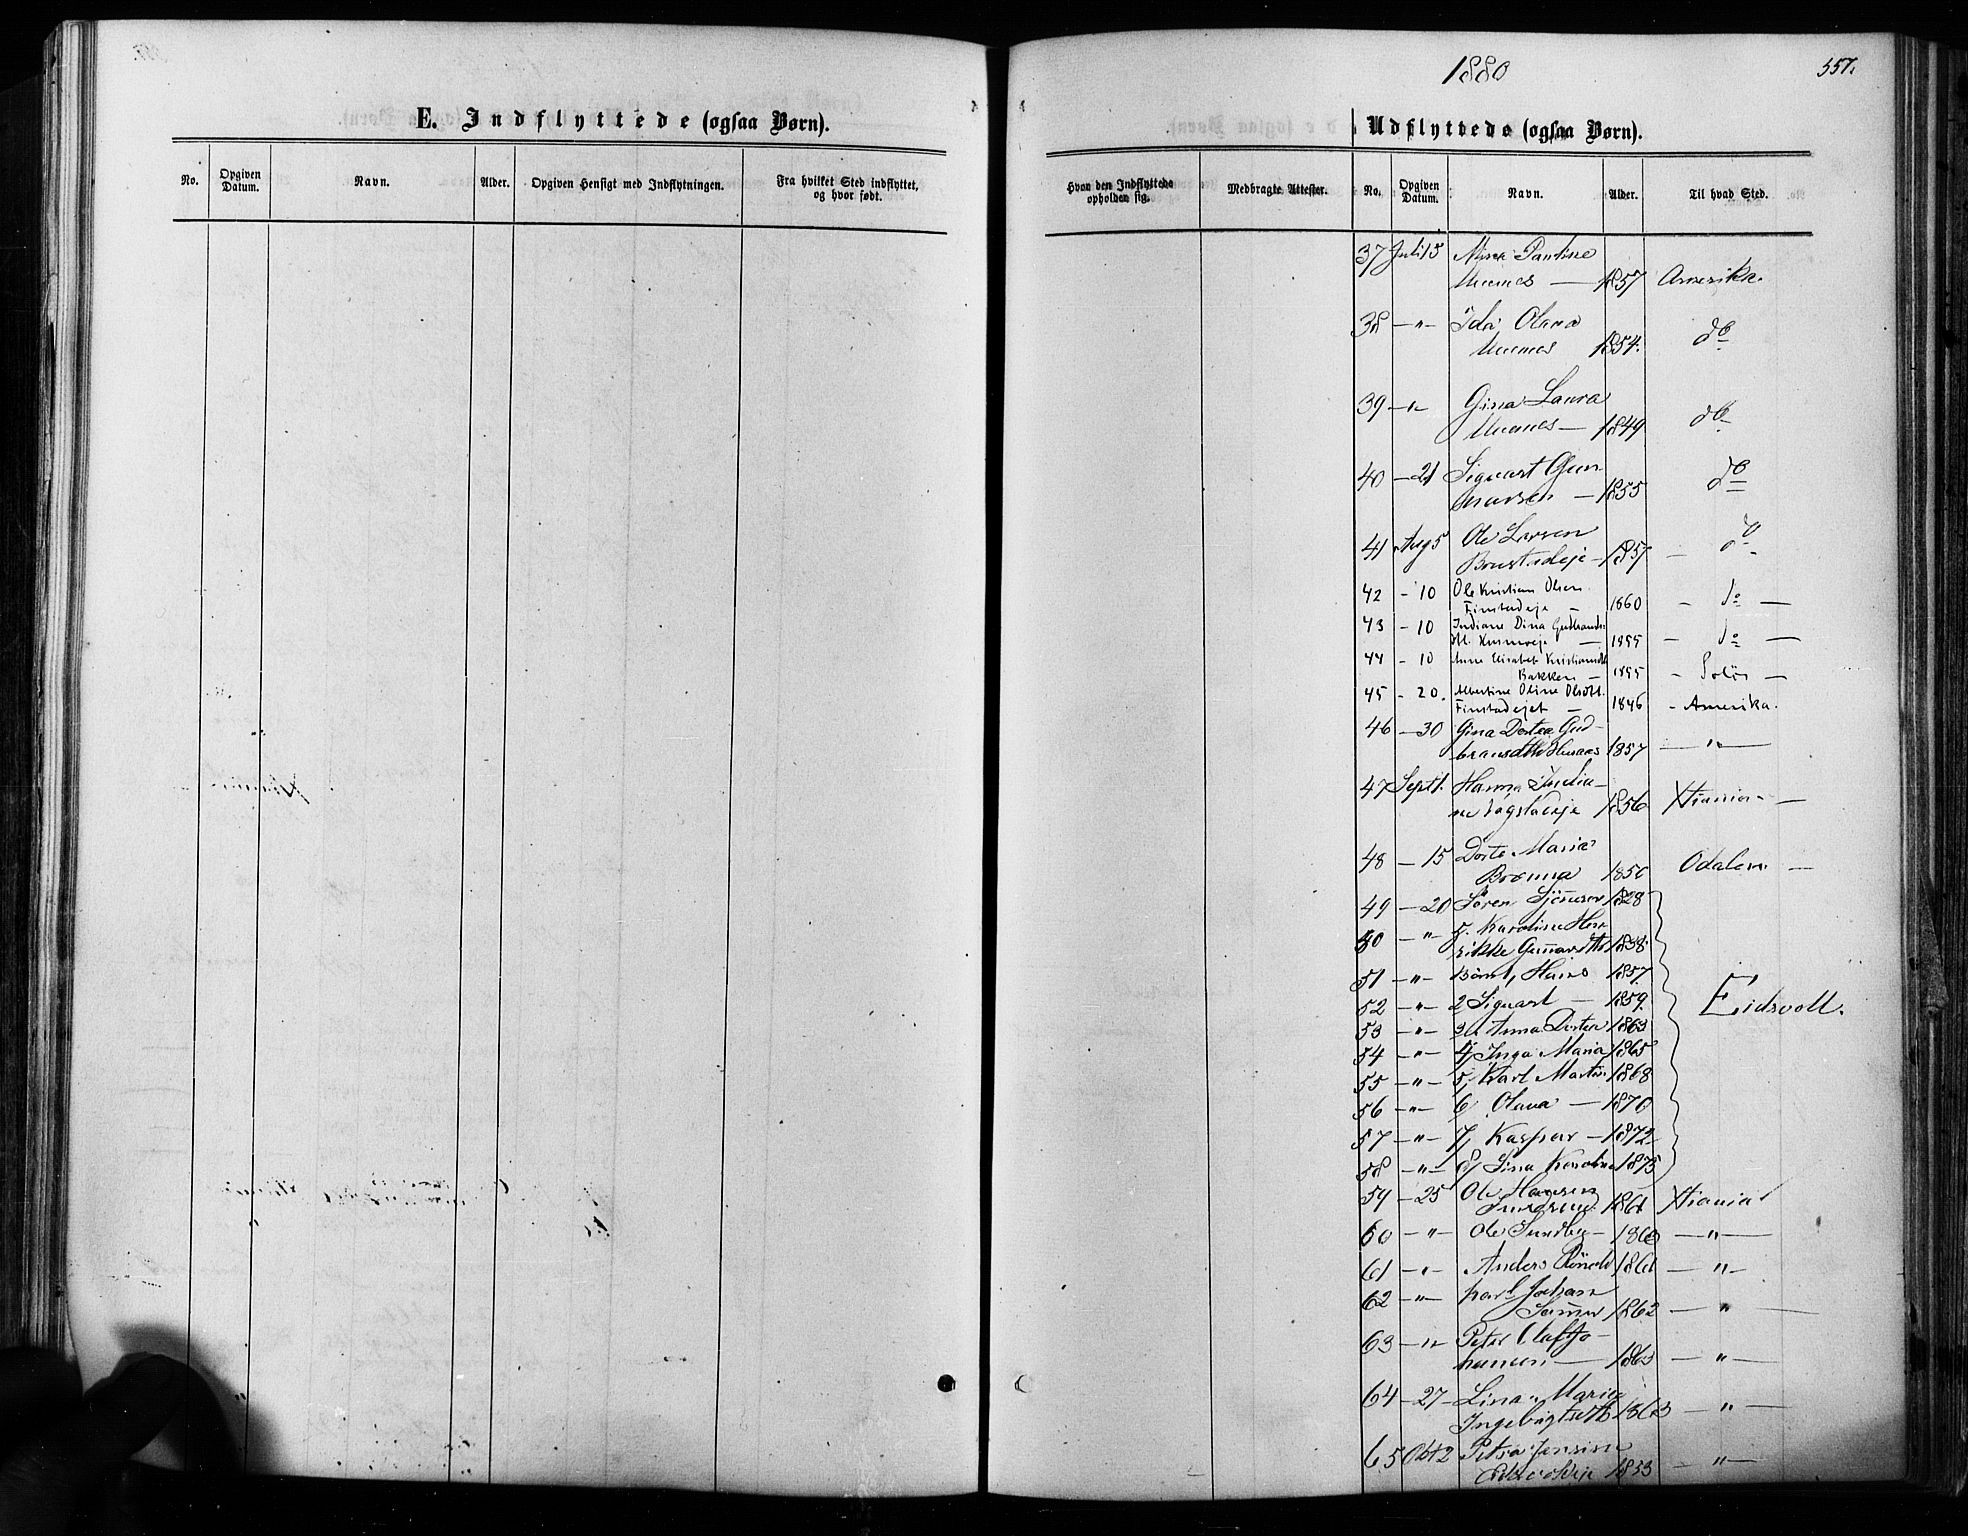 1880
357.
E. Indflyttede (ogsaa Børn).
Udflyttede (ogsaa Børn).
No. Opgiven Datum. Navn. Alder. Opgiven Hensigt med Indflytningen. Fra hvilket Sted indflyttet, og hvor født.
Hvor den Indflyttede opholder sig. Medbragte Attester. No. Opgiven Datum. Navn. Alder. Til hvad Sted.
37 Juli 15 Mina Pauline
1857 Amerika.
38 — " — Ida Olava
1854. do
39 — " — Gina Laura
— 1849 do
40 — 21 Siguart Gun-
narsen — 1855 do
41 Aug 5 Ole Larsen
— 1857 — do —
42 - 10 Ole Kristian Olsen
Finstadeje — 1860 — do —
43 - 10 Indiane Dina Gudbrands-
dtt. — 1855 — do —
44 - 10 Anne Elisabet Kristiansdt
Bakken — 1855 — Solør —
45 - 20. Albertine Oline Olsdtt.
Finstadejet — 1846 - Amerika.
46 — 30 Gina Dortea Gud-
bransdtt 1857 — " —
47 Sept 1. Hanna India-
ne 1856 Xiania —
48 — 15 Dorte Maria
1850 Odalen —
49 — 20 Søren 1828
50 — " — Karoline Hen-
rikke Gunnarsdtt 1838.
51 — " — Børn 1, Hans 1857.
52 — " — 2 Siguart — 1859.
Eidsvoll.
53 — " — 3 Anna Dortea 1863
54 — " — 4, Inga Maria 1865
55 — " — 5, Karl Martin 1868
56 — " — 6, Olava — 1870
57 — " — 7, Kaspar — 1872
58 — " — 8, Lina Karoline 1875
59 — 25 Ole Hansen
1861 Xiania
60 — " — Ole Sundby — 1860 — " —
61 — " — Anders 1861 — " —
62 — " — Karl Johan
1862 — " —
63 — " — Peter Olaf Jo-
hansen — 1863 — " —
64 — 27 — Lina Marie
Ingebrigtsdtt 1863 — " —
65 Okt 2 Petra Jensine
1853 — " —